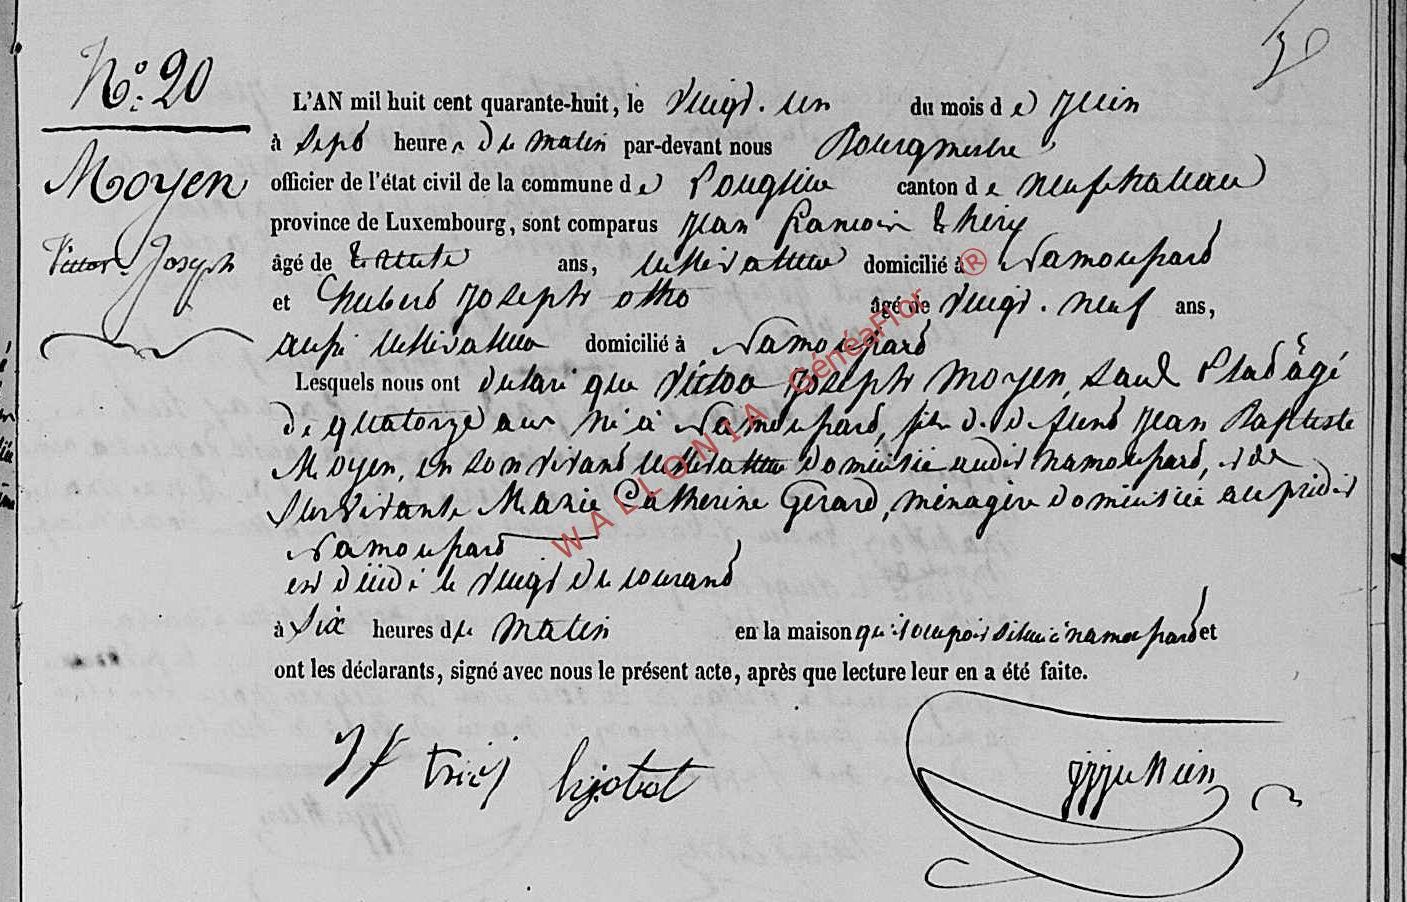 No. 20
Moyen
Victor Joseph
L'AN mil huit cent quarante-huit, le vingt-un du mois de Juin
à Sept heures de matin par-devant nous Bourgmestre
officier de l'état civil de la commune de canton de neufchateau
province de Luxembourg, sont comparus Jean francois
âgé de trente ans, cultivateur domicilié à Namoussart
et hubert Joseph otto âgé de vingt-neuf ans,
aussi cultivateur domicilié à Namoussart
Lesquels nous ont déclaré que victor Joseph Moyen, sans Etat âgé
de quatorze ans né à Namoussart, fils de defunt Jean Baptiste
Moyen, en son vivant cultivateur domicilié audit namoussart, et de
survivante Marie Catherine Gerard, ménagère domiciliée au prédit
Namoussart
est décédé le vingt de courant
à Six heures de Matin en la maison qu'il occupoit située à namoussart et
ont les déclarants, signé avec nous le présent acte, après que lecture leur en a été faite.
WALLONIA GénéaFlor ®